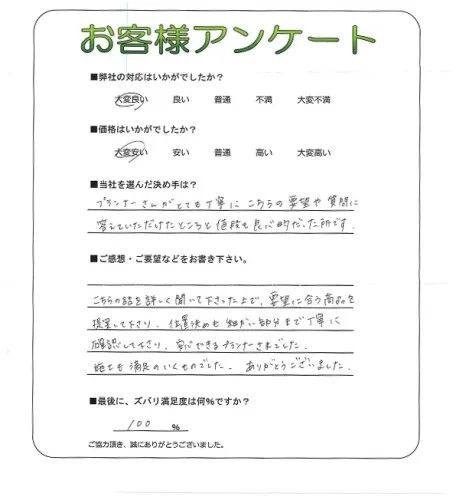 お客様アンケート
■弊社の対応はいかがでしたか？
大変良い 良い 普通 不満 大変不満
■価格はいかがでしたか？
大変安い 安い 普通 高い 大変高い
■当社を選んだ決め手は？
プランナーさんがとても丁寧に こちらの要望や質問に
答えていただけたところと値段も良心的だった所です。
■ご感想・ご要望などをお書き下さい。
こちらの話を詳しく聞いて下さった上で、要望に合う商品を
提案して下さり、位置決めも細かい部分まで丁寧に
確認して下さり、安心できるプランナーさまでした。
施工も満足のいくものでした。 ありがとうございました。
■最後に、ズバリ満足度は何%ですか？
100 %
ご協力頂き、誠にありがとうございました。